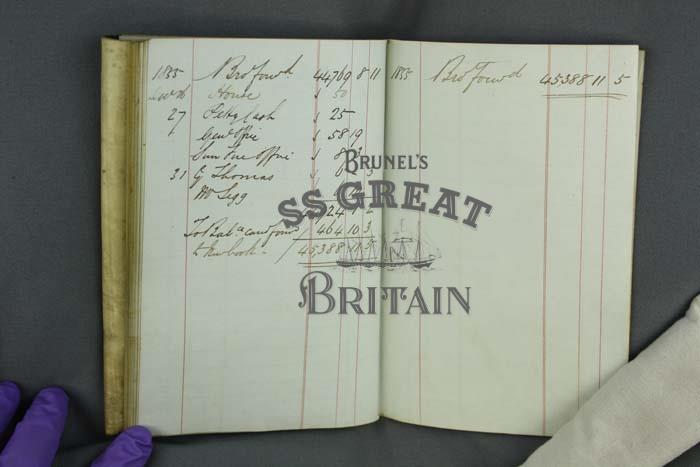 1855 Bro Forwd 44769 8 11
House √ 50
27 Petty Cash √ 25
Genl Offie √ 58 19
Sun Fire Offie √ 8
31 G Thomas √
Wm Legg √
24 1 2
To Bale carrd forwd 464 10 3
to New book - 45388 11 5
1855 Bro Forwd 45388 11 5
BRUNEL'S
SS GREAT
BRITAIN